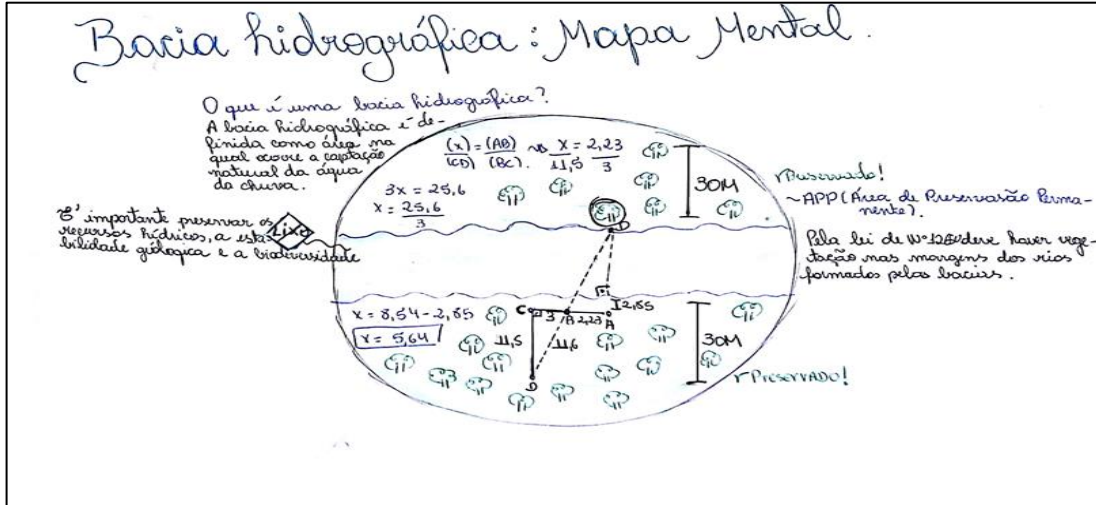 Bacia hidrográfica: Mapa Mental.
O que é uma bacia hidrográfica?
A bacia hidrográfica é de-
finida como área na
qual ocorre a captação
natural da água
da chuva.
É importante preservar os
recursos hídricos, a esta
bilidade giólogica e a biodiversidade
Lixo
(x) = (AB) ⇒ x = 2,23
(CD) (BC). 11,5 3
3x = 25,6
x = 25,6
3
30M
Preservado!
~APP (Área de Preservasão Perma-
nente).
Pela lei de deve haver vege-
tação nas margens dos rios
formados pelas bacias.
D
x = 8,54 - 2,85
x = 5,64
C 3 B 2,23 A
2,85
11,5 11,6
D
30M
PRESERVADO!